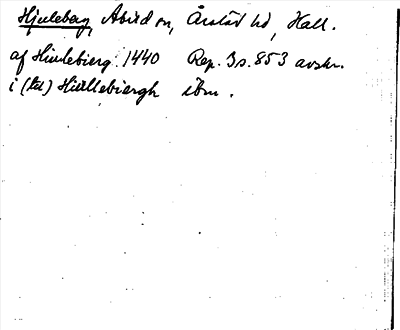 Hjuleberg, Abild sn, Årstad hd, Hall.
af Hiulebierg. 1440 Rep. 3 s. 853 avskr.
i (td) Hiullebiergh ibm.